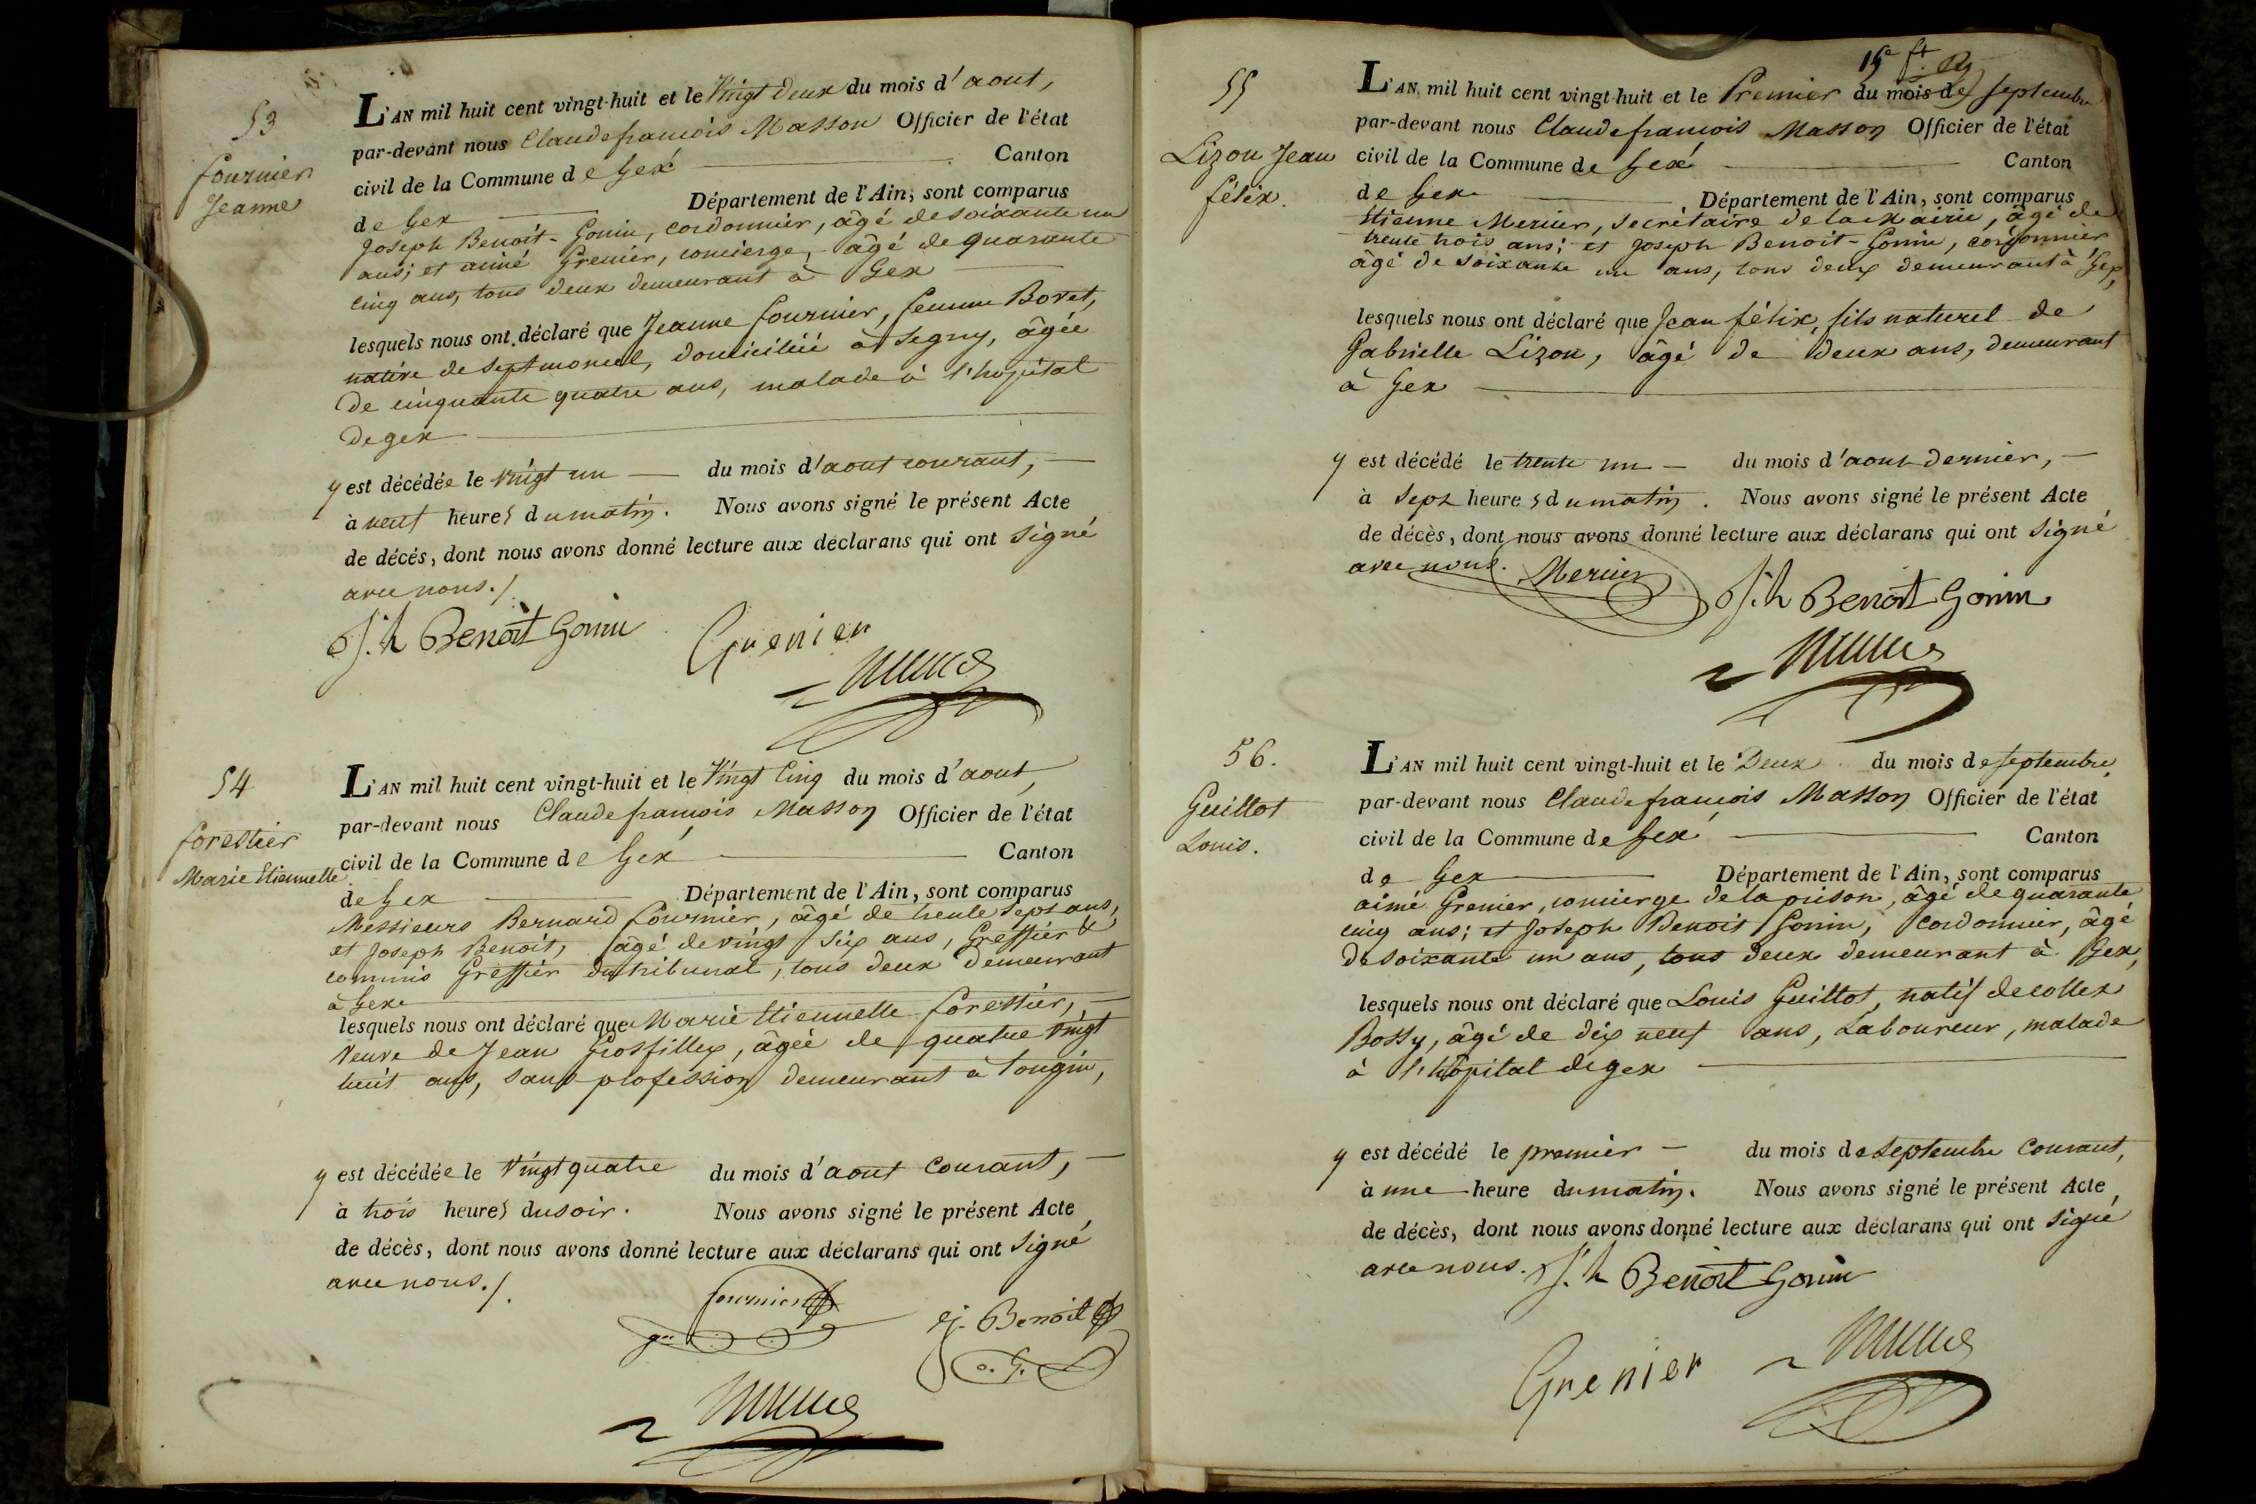 53
fournier
Jeanne
L'AN mil huit cent vingt-huit et le Vingt deux du mois d'aout,
par-devant nous Claude françois Masson Officier de l'état
civil de la Commune de Gex Canton
de Gex Département de l'Ain, sont comparus
Joseph Benoit-Gonin, cordonnier, âgé de soixante un
ans; et aimé Grenier, concierge, âgé de quarante
cinq ans, tous deux demeurant à Gex
lesquels nous ont déclaré que Jeanne fournier, femme Bovet,
native de Septmoncel, domiciliée à Segny, âgée
de cinquante quatre ans, malade à l'hopital
de gex
y est décédée le vingt un du mois d'aout courant,
à neuf heures du matin. Nous avons signé le présent Acte
de décés, dont nous avons donné lecture aux déclarans qui ont signé
avec nous./.
Jh Benoit Gonin Grenier
54
forestier
Marie Etiennette
L'AN mil huit cent vingt-huit et le Vingt Cinq du mois d'aout,
par-devant nous Claude françois Masson Officier de l'état
civil de la Commune de Gex Canton
de Gex Département de l'Ain, sont comparus
Messieurs Bernard fournier, âgé de trente sept ans,
et Joseph Benoit, âgé de vingt six ans, Greffier &
commis Greffier du tribunal, tous deux demeurant
à Gex
lesquels nous ont déclaré que Marie Etiennette forestier,
Veuve de Jean Grosfillex, âgée de quatre vingt
huit ans, sans profession demeurant à Tougin,
y est décédée le vingt quatre du mois d'aout courant,
à trois heures du soir. Nous avons signé le présent Acte
de décès, dont nous avons donné lecture aux déclarans qui ont signé
avec nous./.
fournier
J. Benoit
15e ft.
55
Lizon Jean
félix.
L'AN mil huit cent vingt-huit et le Premier du mois de septembre
par-devant nous Claude françois Masson Officier de l'état
civil de la Commune de Gex Canton
de Gex Département de l'Ain, sont comparus
Etienne Mercier, secrétaire de la Mairie, âgé de
trente trois ans; et Joseph Benoit-Gonin, cordonnier
âgé de soixante un ans, tous deux demeurant à Gex,
lesquels nous ont déclaré que Jean félix, fils naturel de
Gabrielle Lizon, âgé de deux ans, demeurant
à Gex
y est décédé le trente un du mois d'aout dernier,
à sept heures du matin. Nous avons signé le présent Acte
de décès, dont nous avons donné lecture aux déclarans qui ont signé
avec nous. Mercier Jh Benoit Gonin
56.
Guillot
Louis.
L'AN mil huit cent vingt-huit et le Deux du mois de septembre,
par-devant nous Claude françois Masson Officier de l'état
civil de la Commune de Gex Canton
de Gex Département de l'Ain, sont comparus
aimé Grenier, concierge de la prison, âgé de quarante
cinq ans; et Joseph Benoit Gonin, cordonnier, âgé
de soixante un ans, tous deux demeurant à Gex,
lesquels nous ont déclaré que Louis Guillot, natif de collex
Bossy, âgé de dix neuf ans, Laboureur, malade
à l'hôpital de gex
y est décédé le premier du mois de septembre courant,
à une heure du matin. Nous avons signé le présent Acte
de décès, dont nous avons donné lecture aux déclarans qui ont signé
avec nous. Jh Benoit Gonin
Grenier